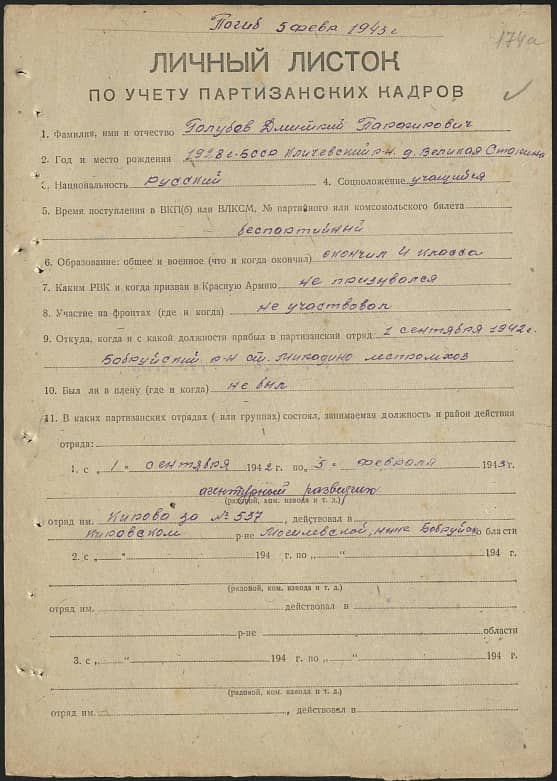 Погиб 5 февр 1943 г
174а
ЛИЧНЫЙ ЛИСТОК
ПО УЧЕТУ ПАРТИЗАНСКИХ КАДРОВ
1. Фамилия, имя и отчество Голубов Дмитрий
2. Год и место рождения БССР Кличевский р-н. д. Великая
3. Национальность русский 4. Соцположение учащийся
5. Время поступления в ВКП(б) или ВЛКСМ, № партийного или комсомольского билета
беспартийный
6. Образование: общее и военное (что и когда окончил) окончил 4 класса
7. Каким РВК и когда призван в Красную Армию не призувался
8. Участие на фронтах (где и когда) не участвовал
9. Откуда, когда и с какой должности прибыл в партизанский отряд 1 сентября 1942 г.
Бобруйский р-н ст. Мирадино леспромхоз
10. Был ли в плену (где и когда) не был
11. В каких партизанских отрядах (или группах) состоял, занимаемая должность и район действия
отряда:
1. с „1" сентября 1942 г. по „5" февраля 1943 г.
агентурный разведчик
(рядовой, ком. взвода и т. д.)
отряд им. Кирова за № 537, действовал в
Кировском р-не Могилевской, ныне Бобруйск области
2. с „ " 194 г. по „ " 194 г.
(рядовой, ком. взвода и т. д.)
отряд им. действовал в
р-не области
3. с „ " 194 г. по „ " 194 г.
(рядовой, ком. взвода и т. д.)
отряд им. , действовал в